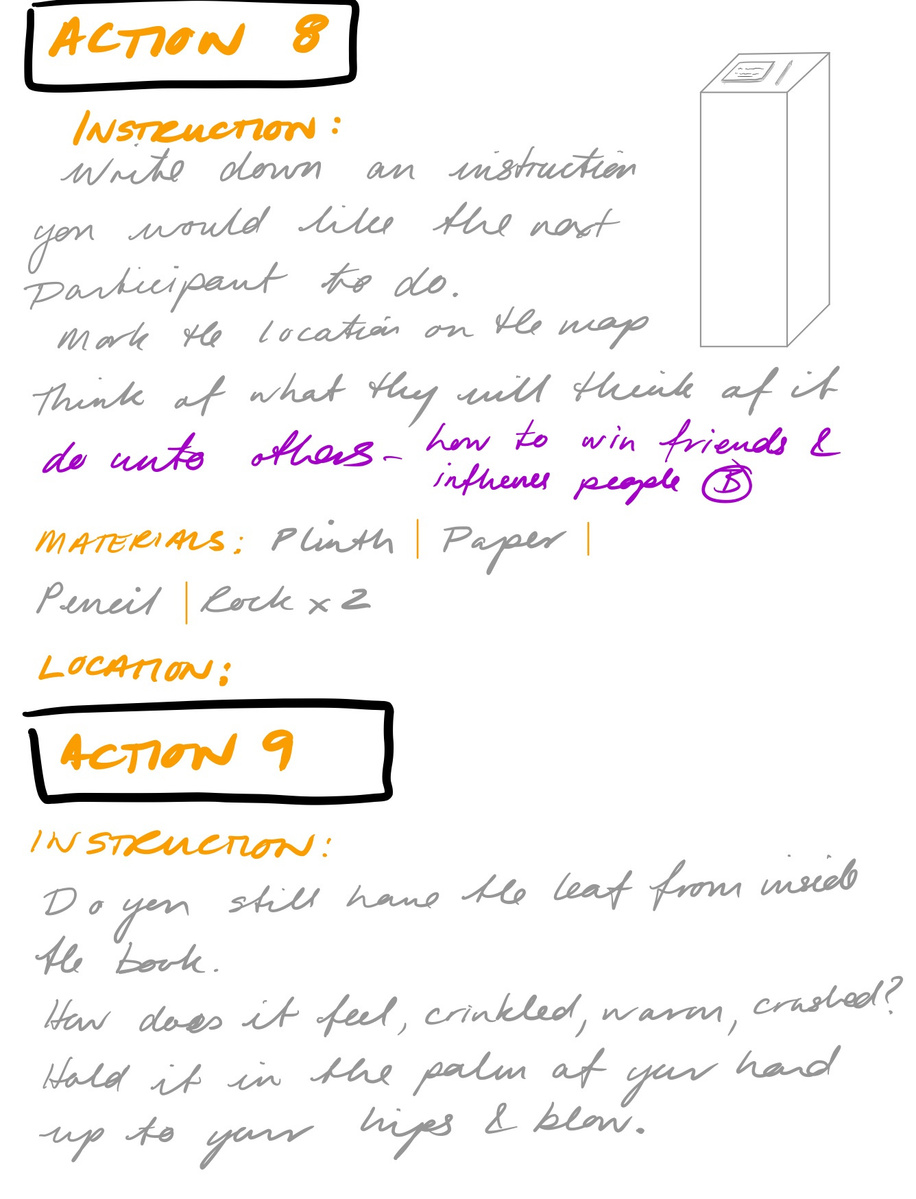 ACTION 8
INSTRUCTION:
Write down an instruction
you would like the next
Participant to do.
Mark the location on the map
Think of what they will think of it
do unto others - how to win friends &
influences people B
MATERIALS: Plinth | Paper |
Pencil | Rock x 2
LOCATION:
ACTION 9
INSTRUCTION:
Do you still have the leaf from inside
the book.
How does it feel, crinkled, warm, crushed?
Hold it in the palm of your hand
up to your lips & blow.